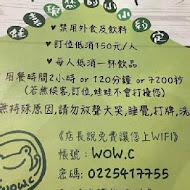 樂悠的小約定
♥禁用外食及飲料
♥訂位低消150元/人
♥每人低消一杯飲品
用餐時間2小時 or 120分鐘 or 7200秒
(若無候客,訂位,蛙蛙不會打擾您)
無特殊原因,請勿放聲大笑,睡覺,打牌,洗
《店長說免費讓您上WIFI》
帳號:WOW.C
密碼:0225417755
WOW.C